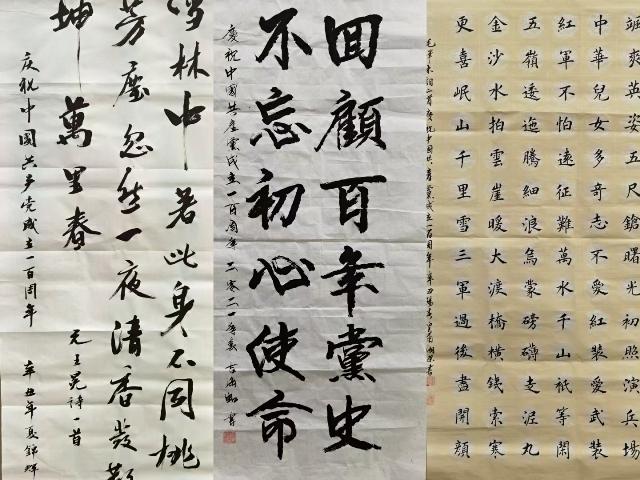 颯爽英姿五尺鎗曙光初照演兵場
中華兒女多奇志不愛紅裝愛武裝
紅軍不怕遠征難萬水千山衹等閑
五嶺逶迤騰細浪烏蒙磅礴走泥丸
金沙水拍雲崖暖大渡橋橫鐵索寒
更喜岷山千里雪三軍過後盡開顏
回顧百年黨史
不忘初心使命
慶祝中國共產黨成立一百周年 二零二一年夏
雪林中著此身不同桃
芳塵忽然一夜清香發
坤萬里春
元王冕詩一首
庆祝中國共产党成立一百周年 辛丑年夏錦輝